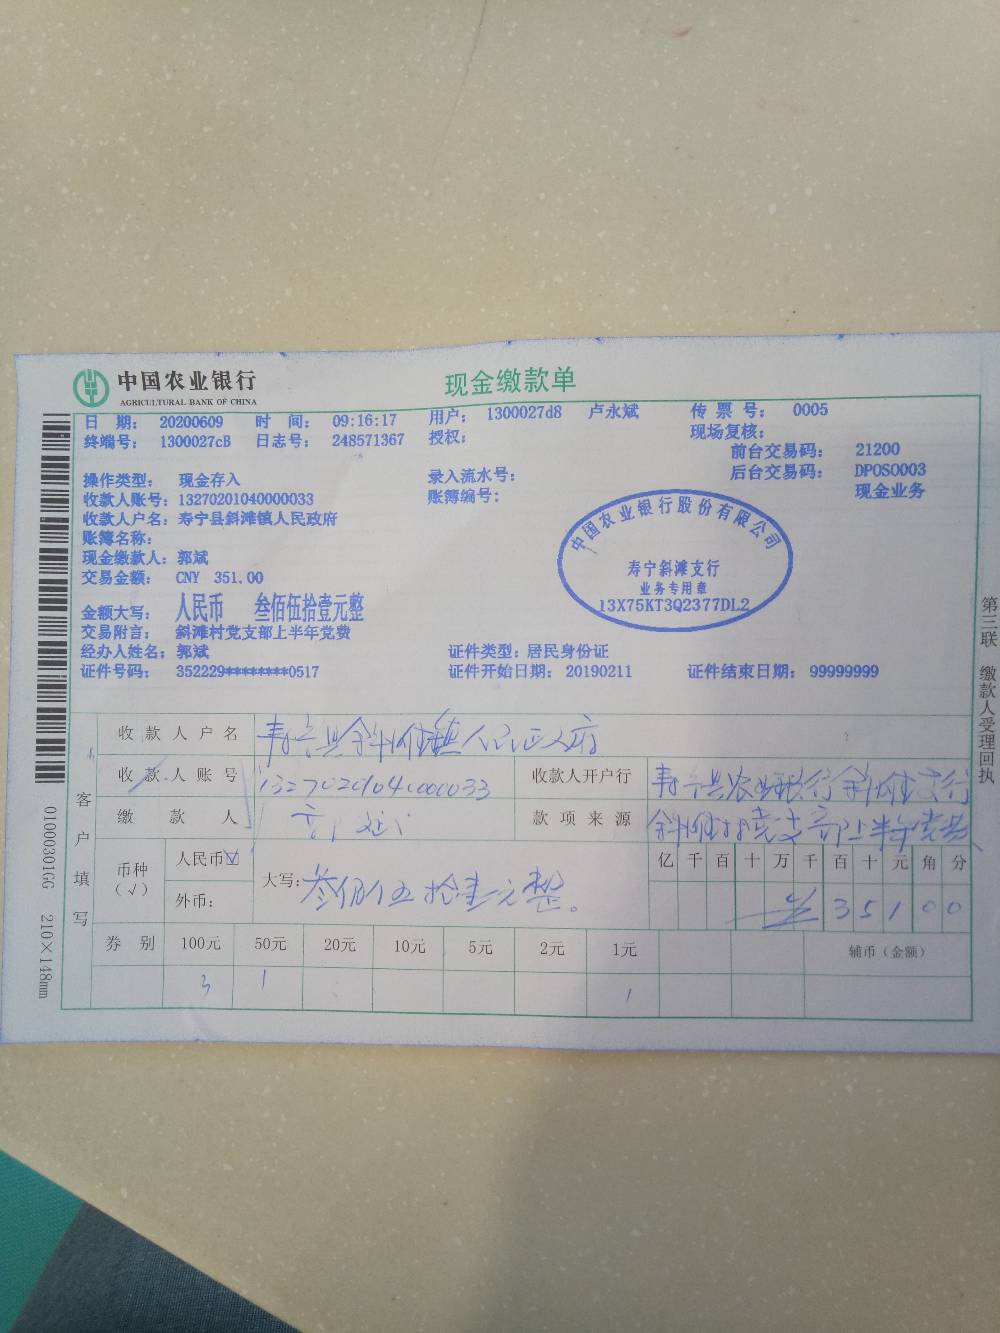 中国农业银行
AGRICULTURAL BANK OF CHINA
现金缴款单
日 期： 20200609 时 间： 09:16:17 用户： 1300027d8 卢永斌 传 票 号： 0005
终端号： 1300027cB 日志号： 248571367 授权： 现场复核：
前台交易码： 21200
操作类型： 现金存入 录入流水号： 后台交易码： DPOSO003
收款人账号：13270201040000033 账簿编号： 现金业务
收款人户名：寿宁县斜滩镇人民政府
账簿名称：
现金缴款人：郭斌
交易金额： CNY 351.00
金额大写： 人民币 叁佰伍拾壹元整
交易附言： 斜滩村党支部上半年党费
经办人姓名：郭斌 证件类型：居民身份证
证件号码： 352229********0517 证件开始日期：20190211 证件结束日期：99999999
中国农业银行股份有限公司
寿宁斜滩支行
业务专用章
13X75KT3Q2377DL2
第三联 缴款人受理回执
01000301GG 210×148mm
客户填写
收款人户名 寿宁县斜滩镇人民政府
收款人账号 13270201040000033 收款人开户行 寿宁县农业银行斜滩支行
缴款人 郭斌 款项来源 斜滩村党支部上半年党费
币种（√） 人民币☑ 大写：叁佰伍拾壹元整。 亿 千 百 十 万 千 百 十 元 角 分
外币： 3 5 1 0 0
券别 100元 50元 20元 10元 5元 2元 1元 辅币（金额）
3 1 1